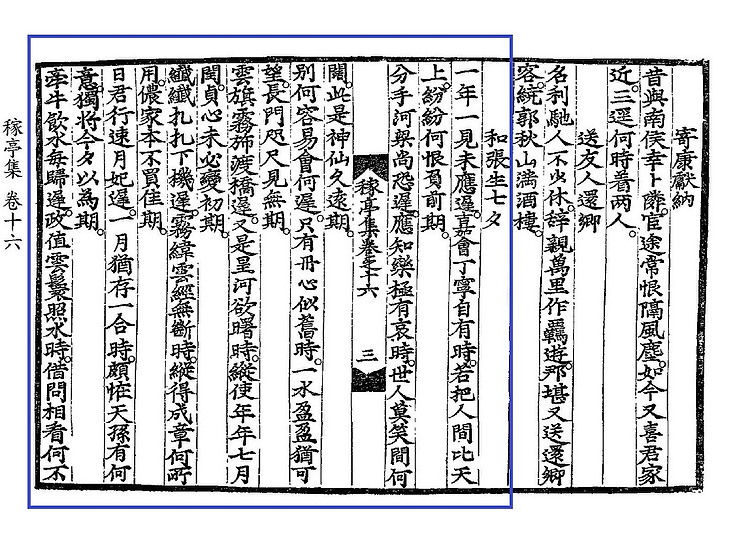 寄康獻納
昔與南侯幸卜隣官途常恨隔風塵如今又喜君家
近三逕何時着兩人
送友人還鄉
名利馳人不少休辞親萬里作羈遊那堪又送還鄉
客統郭秋山滿酒樓
和張生七夕
一年一見未應遲嘉會丁寧自有時若把人間比天
上紛紛何恨負前期
分手河梁尚恐遲應知樂極有哀時世人莫笑間何
稼亭集卷之十六 三
闊此是神仙久遠期
別何容易會何遲只有丹心似舊時一水盈盈猶可
望長門咫尺見無期
雲旗霧斾渡橋遲又是星河欲曙時縱使年年七月
閏貞心未必變初期
纖纖扎扎下機遲霧緯雲經無斷時縱得成章何所
用儂家本不買佳期
日君行速月妃遲一月猶存一合時頗怪天孫有何
意獨將今夕以為期
牽牛飮水每歸遲政值雲鬟照水時借問相看何不
稼亭集 卷十六